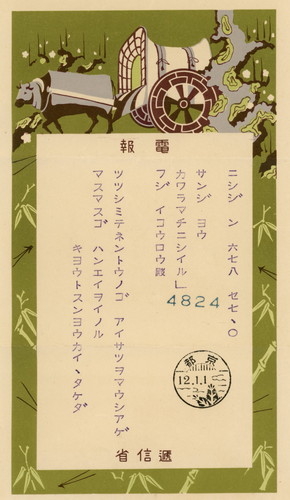 電報
ニシジン 六七八 セ七、〇
サンジ ヨウ
カワラマチニシイル」
フジ イコウロウ殿
4824
ツツシミテネントウノゴ アイサツヲマウシアゲ
マスマスゴ ハンエイヲイノル
キヨウトスンヨウカイ、タケダ
京都
12.1.1
遞信省